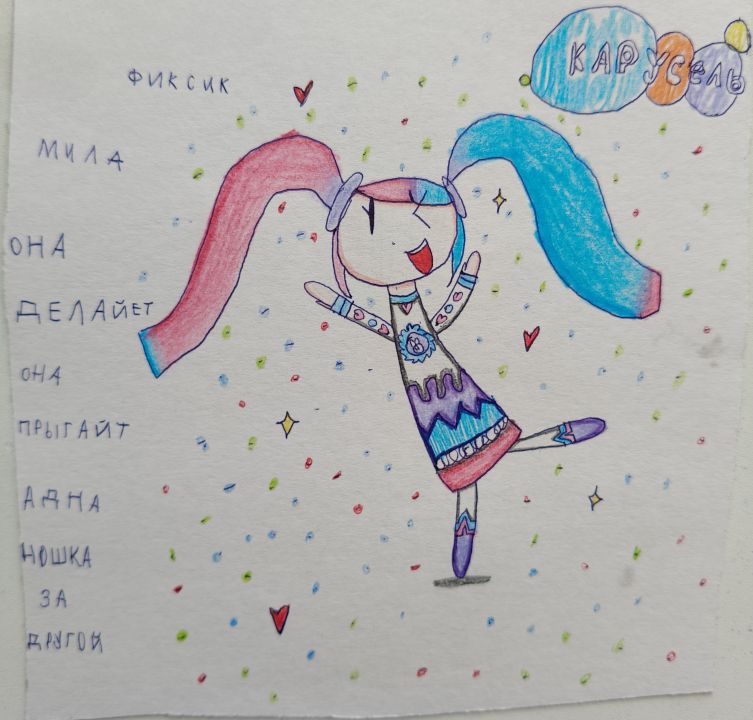 КАРУСЕЛЬ
ФИКСИК
МИЛА
ОНА
ДЕЛАЙЕТ
ОНА
ПРЫГАЙТ
АДНА
НОШКА
ЗА
ДРУГОЙ